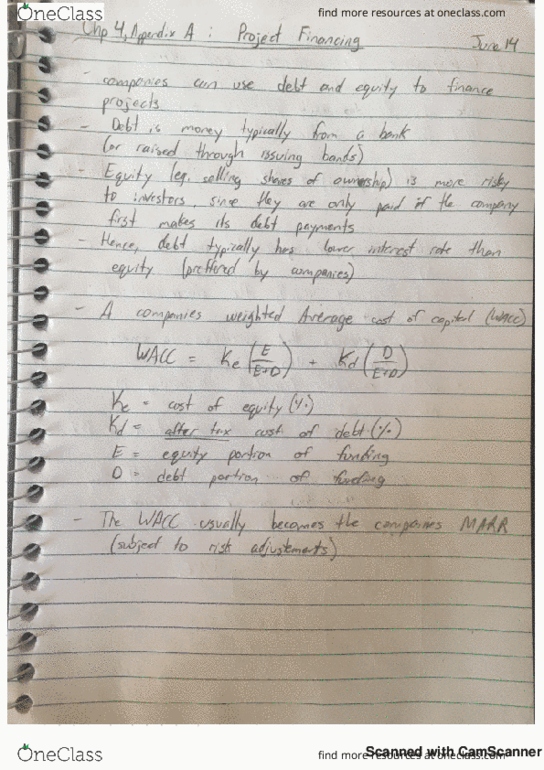 OneClass
find more resources at oneclass.com
Chp 4, Appendix A : Project Financing
June 14
- companies can use debt and equity to finance
projects
- Debt is money typically from a bank
(or raised through issuing bands)
- Equity (eg. selling shares of ownership) is more risky
to investors since they are only paid if the company
first makes its debt payments
- Hence, debt typically has lower interest rate than
equity (preffered by companies)
- A companies weighted Average cost of capital (WACC)
WACC = Ke (E/E+D) + Kd (D/E+D)
Ke = cost of equity (%)
Kd = after tax cost of debt (%)
E = equity portion of funding
D = debt portion of funding
- The WACC usually becomes the companies MARR
(subject to risk adjustements)
OneClass
find more resources at oneclass.com
Scanned with CamScanner